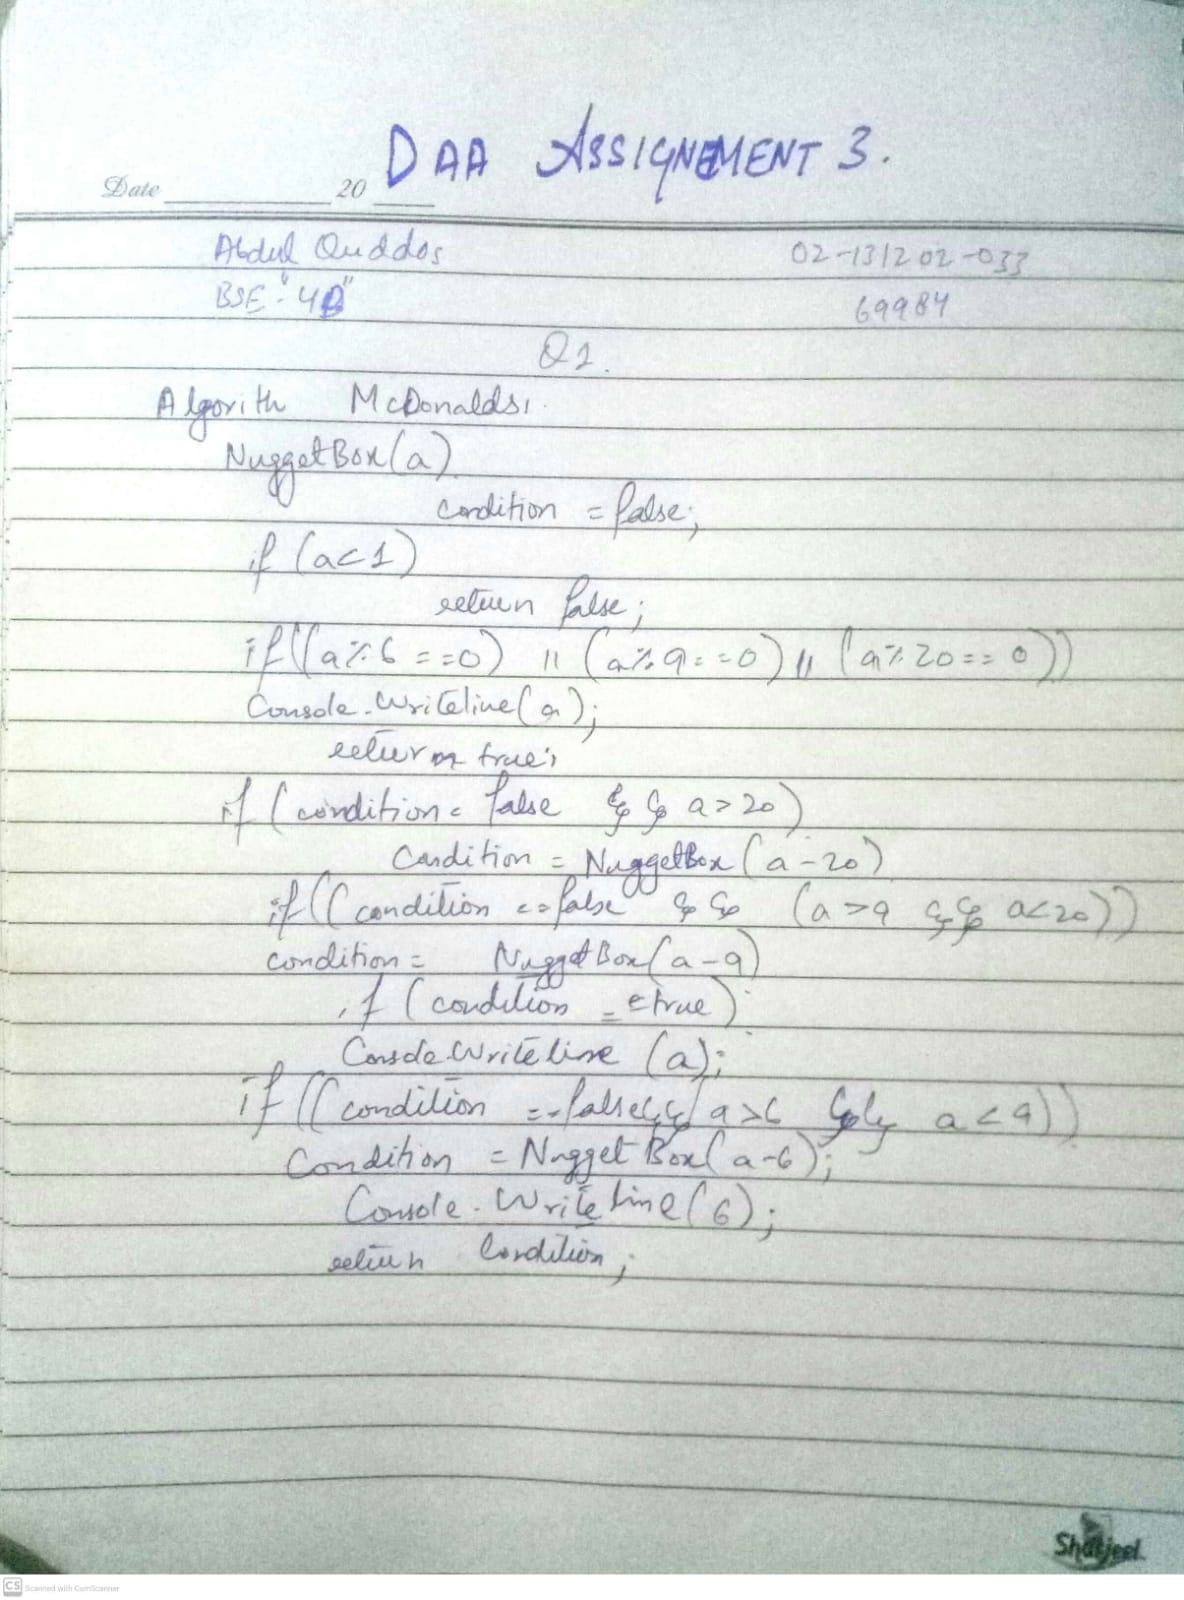 DAA ASSIGNEMENT 3.
Date 20
Abdul Quddos 02-131202-033
BSE "4B" 69984
Q1.
Algorith McDonalds:
NuggetBox(a)
condition = false;
if (a<1)
return false;
if((a%6==0) || (a%9==0) || (a%20==0))
Console.Writeline(a);
return true;
if (condition= false && a>20)
Condition = NuggetBox(a-20)
if((condition ==false && (a>9 && a<20))
condition = NuggetBox(a-9)
if (condition = =true)
Console.Writeline (a);
if((condition ==false&& a>6 && a<9))
Condition = NuggetBox(a-6);
Console.Writeline(6);
return Condition;
Sharjeel
CS Scanned with CamScanner